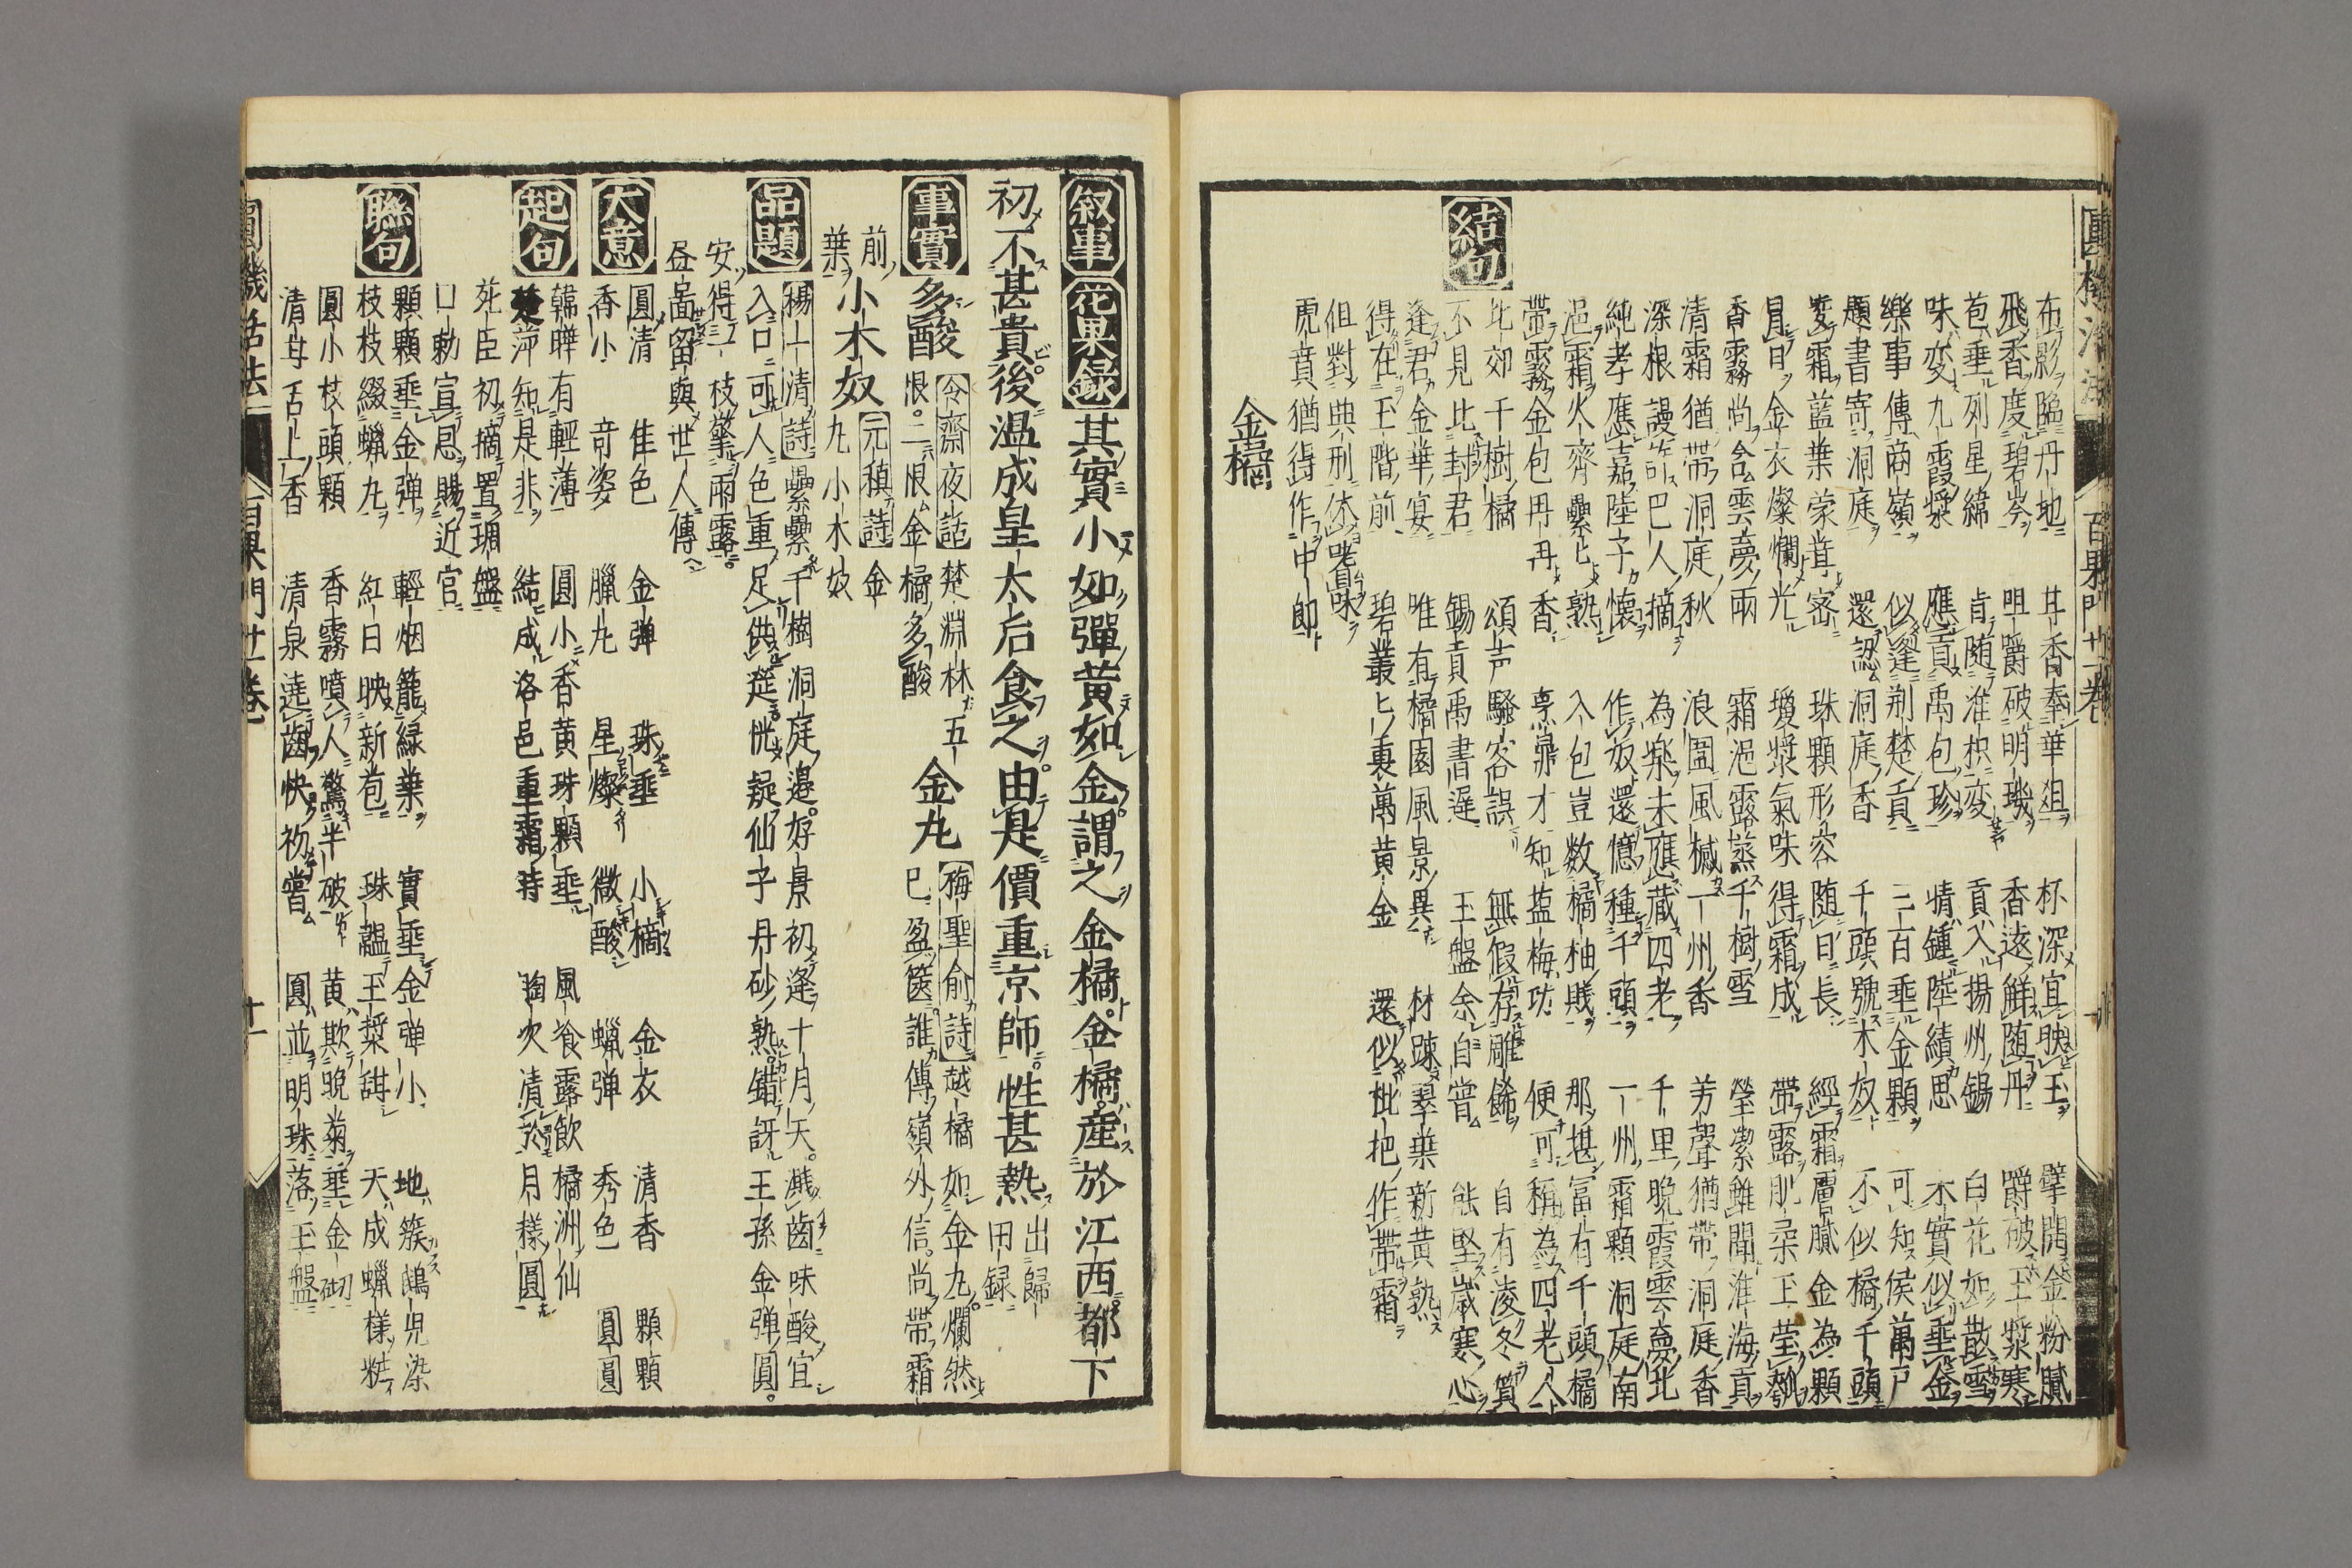 布影臨丹地 甘香奉華俎 杯深宜映玉 擘開金粉膩
飛香度碧岑 咀嚼破明璣 香遠鮮随丹 嚼破玉漿寒
苞垂列星緯 肯随淮枳変 貢入揚州錫 白花如散雪
味変九霞漿 應貢禹包珍 情鍾陸績思 木實似垂金
樂事傳商嶺 似逢荆楚貢 三百垂金顆 可知侯萬戸
題書寄洞庭 還認洞庭香 千頭號木奴 不似橘千頭
変霜藍葉蒙茸密 珠顆形容随日長 經霜膚膩金為顆
見日金衣燦爛光 瓊漿氣味得霜成 帶露肌朶玉莹瓠
香霧尚含雲夢雨 霜浥露蒸千樹雪 瑩潔雖聞淮海貢
清霜猶帶洞庭秋 浪圄風搣一州香 芳聲猶帶洞庭香
深根謾許巴人摘 為楽未應蔵四老 千里晩霞雲夢北
純孝應嘉陸子懐 作奴還憶種千頭 一州霜顆洞庭南
浥霜火齊纍匕熟 入包豈数橘柚賎 那堪冨有千頭橘
帶霧金包冉冉香 烹鼎才知蓝梅功 便可稱為四老人
結句
比郊千樹橘 頌声騒客誤 無假存雕餙 自有凌冬質
不見比封君 錫貢禹書遅 玉盤余自嘗 能堅歳寒心
逢君金華宴 唯有橘園風景異 材踈翠葉新黄熟
得在玉階前 碧叢匕裏萬黄金 還似枇把作帶霜
但對典刑休嗜味
虎賁猶得作中郎
金橘
叙事 花果録 其實小如彈黄如金謂之金橘金橘産於江西都下
初不甚貴後温成皇太后食之由是價重京師性甚熱 出歸田録
事實 多酸 令齋夜話 楚淵林五恨二恨金橘多酸 金丸 梅聖俞詩 越橘如金九爛然已盈篋誰傳嶺外信尚帶霜
前葉 小木奴 元稹詩 金九小木奴
品題 楊一清詩 纍纍千樹洞庭邉好景初逢十月天溅齒味酸宜
入口可人色重足供筵恍疑仙子丹砂熟錯訝王孫金弹圓
安得一枝擎雨露
昼啚留與世人傳
大意 圓清 佳色 金弹 珠垂 小橘 金衣 清香 顆顆
香小 奇姿 臘丸 星燦 微酸 蠟弹 秀色 圓圓
起句 韓曄有輕薄 圓小香黄珠顆垂 風飡露飮橘洲仙
楚萍知是非 結成洛邑重霜時 陶穴清於月様圓
茫臣初摘置瑚盤
口勅宣恩賜近官
聯句 顆顆垂金弹 輕烟籠緑葉 實垂金弹小 地簇鵝兒染
枝枝綴蠟九 紅日映新苞 珠韞玉漿甜 天成蠟様粧
圓小枝頭顆 香霧噴人驚半破 黄欺晩菊垂金砌
清母舌上香 清泉遶齒快初嘗 圓並明珠落玉盤
圓機活法 百果門廿一巻 十一